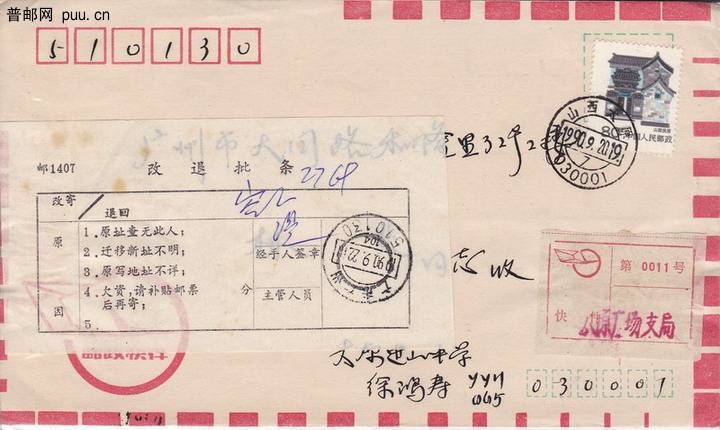 普邮网 puu.cn
510130
80分 中国人民邮政
山西民居
山西太原
1990.9.20.19
7
030001
广州市大同路
邮1407
改退批条
改寄
退回
原因
1.原址查无此人;
2.迁移新址不明;
3.原写地址不详;
4.欠资,请补贴邮票 分
后再寄;
5.
经手人签章
主管人员
510130
104
广东广州
收
第 0011 号
快
太原广场支局
邮政快件
太原进山中学
徐鸿寿
030001